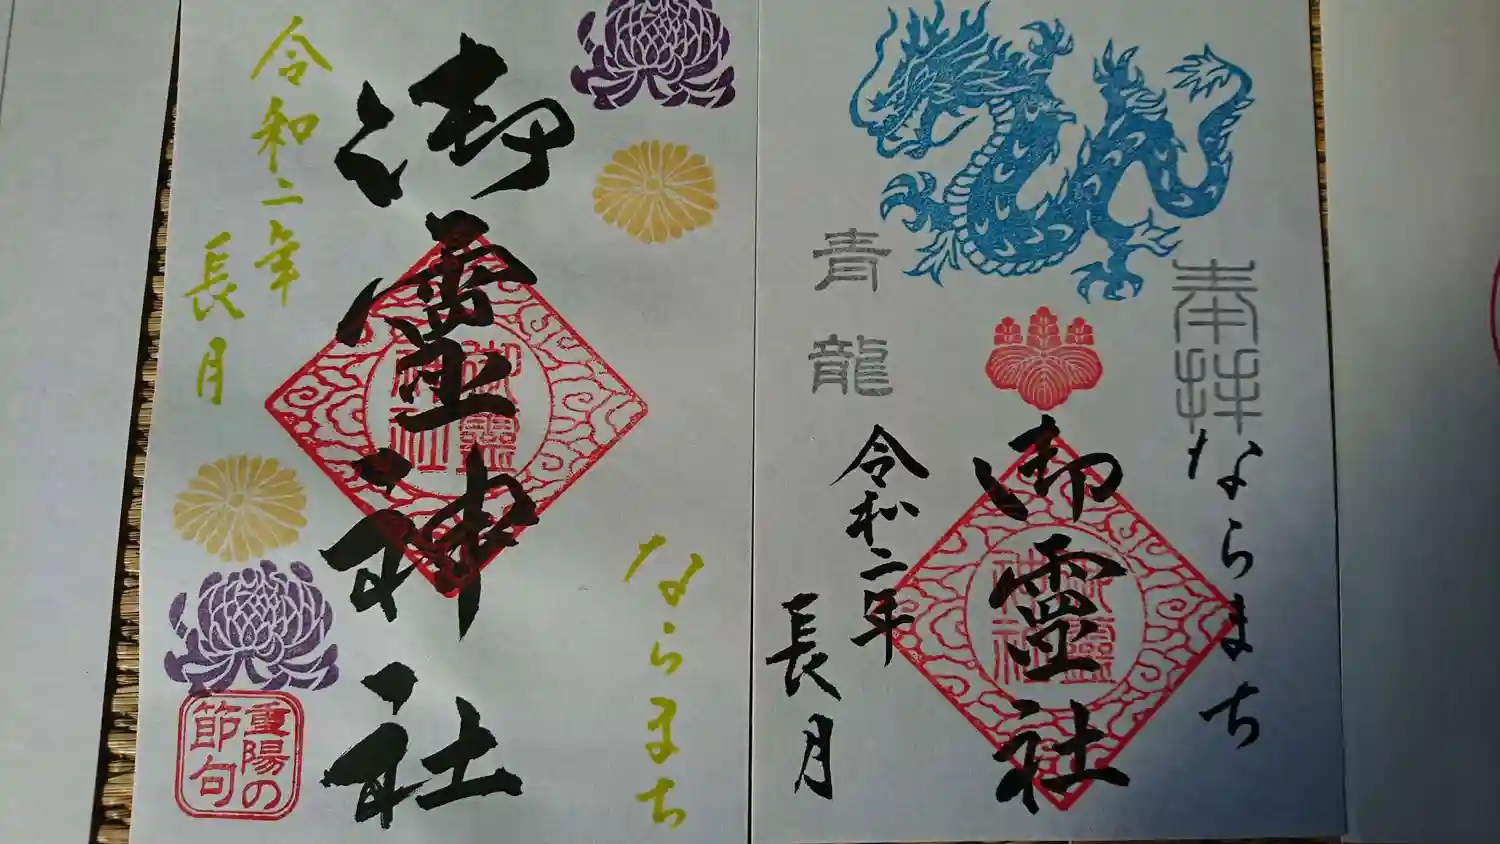 奉拝
ならまち
御霊社
御霊神社
令和二年
長月
青龍
ならまち
御霊神社
御霊神社
令和二年
長月
重陽の
節句